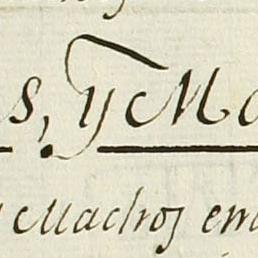 s, y Ma
Machos em